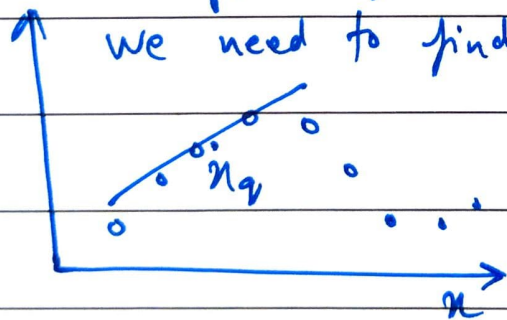 we need to find
xq
x